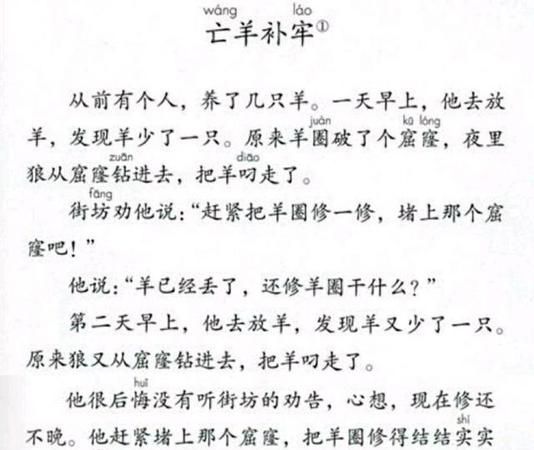 wáng láo
亡羊补牢①
从前有个人，养了几只羊。一天早上，他去放
羊，发现羊少了一只。原来羊圈破了个窟窿，夜里
juàn kū lóng
狼从窟窿钻进去，把羊叼走了。
zuān diāo
街坊劝他说：“赶紧把羊圈修一修，堵上那个窟
fāng
窿吧！”
他说：“羊已经丢了，还修羊圈干什么？”
第二天早上，他去放羊，发现羊又少了一只。
原来狼又从窟窿钻进去，把羊叼走了。
huǐ
他很后悔没有听街坊的劝告，心想，现在修还
shi
不晚。他赶紧堵上那个窟窿，把羊圈修得结结实实